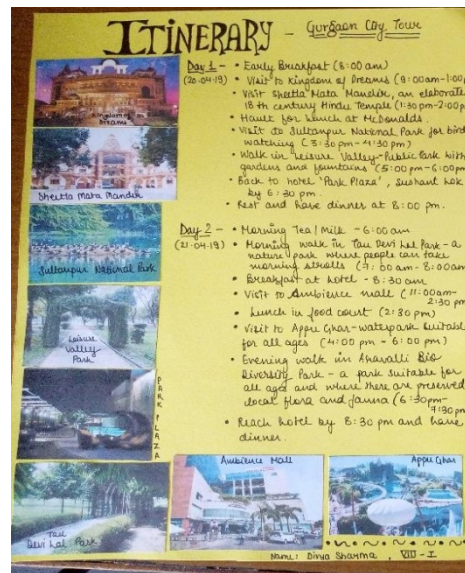 ITINERARY - Gurgaon City Tour
Day 1 - • Early Breakfast (8:00 am)
(20.04.19) • Visit to Kingdom of Dreams (9:00am-1:00p
• Visit Sheetla Mata Mandir, an elaborate
18th century Hindu Temple (1:30pm-2:00p
• Hault for lunch at McDonalds.
• Visit to Sultanpur National Park for bird
watching (3:30 pm-4:30pm)
• Walk in Leisure Valley-Public Park with
gardens and fountains (5:00 pm-6:00pm
• Back to hotel 'Park Plaza', Sushant Lok
by 6:30 pm.
• Rest and have dinner at 8:00 pm.
Day 2 - • Morning Tea/Milk - 6:00 am
(21.04.19) • Morning walk in Tau Devi Lal Park - a
nature park where people can take
morning strolls (7:00 am-8:00am
• Breakfast at hotel - 8:30 am
• Visit to Ambience mall (11:00am-
2:30 pm
• Lunch in food court (2:30 pm)
• Visit to Appu Ghar-waterpark suitable
for all ages (4:00 pm - 6:00 pm)
• Evening walk in Aravalli Bio
Diversity Park - a park suitable for
all ages and where there are preserved
local flora and fauna (6:30pm-
7:30pm
• Reach hotel by 8:30 pm and have
dinner.
Kingdom of
Dreams
Sheetla Mata Mandir
Sultanpur National Park
Leisure
Valley
Park
PARK PLAZA
Tau
Devi Lal Park
Ambience Mall
Appu Ghar
Name: Divya Sharma, VIII-I